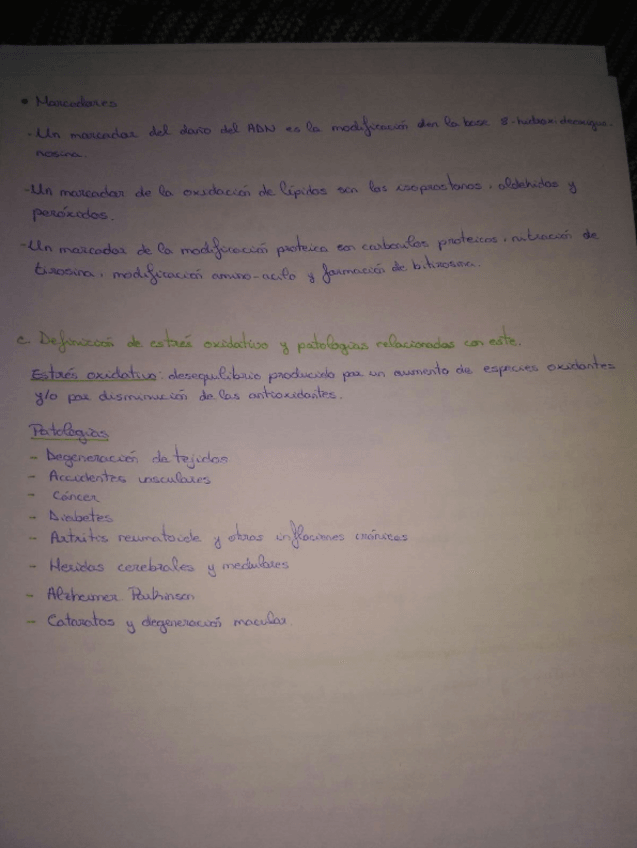 • Marcadores
- Un marcador del daño del ADN es la modificación den la base 8-hidroxideoxigua-
nosina.
- Un marcador de la oxidación de lípidos son los isoprostanos, aldehidos y
peróxidos.
- Un marcador de la modificación proteica son carbonilos proteicos, nitración de
tirosina, modificación amino-acilo y formación de bitirosina.
c. Definición de estrés oxidativo y patologías relacionadas con este.
Estrés oxidativo: desequilibrio producido por un aumento de especies oxidantes
y/o por disminución de los antioxidantes.
Patologías
- Degeneración de tejidos
- Accidentes vasculares
- Cáncer
- Diabetes
- Artritis reumatoide y otras inflaciones crónicas
- Heridas cerebrales y medulares
- Alzheimer Parkinson
- Cataratas y degeneración macular